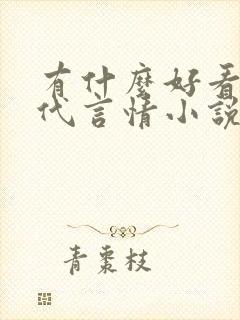 有什麼好看
代言情小說
青棗枝